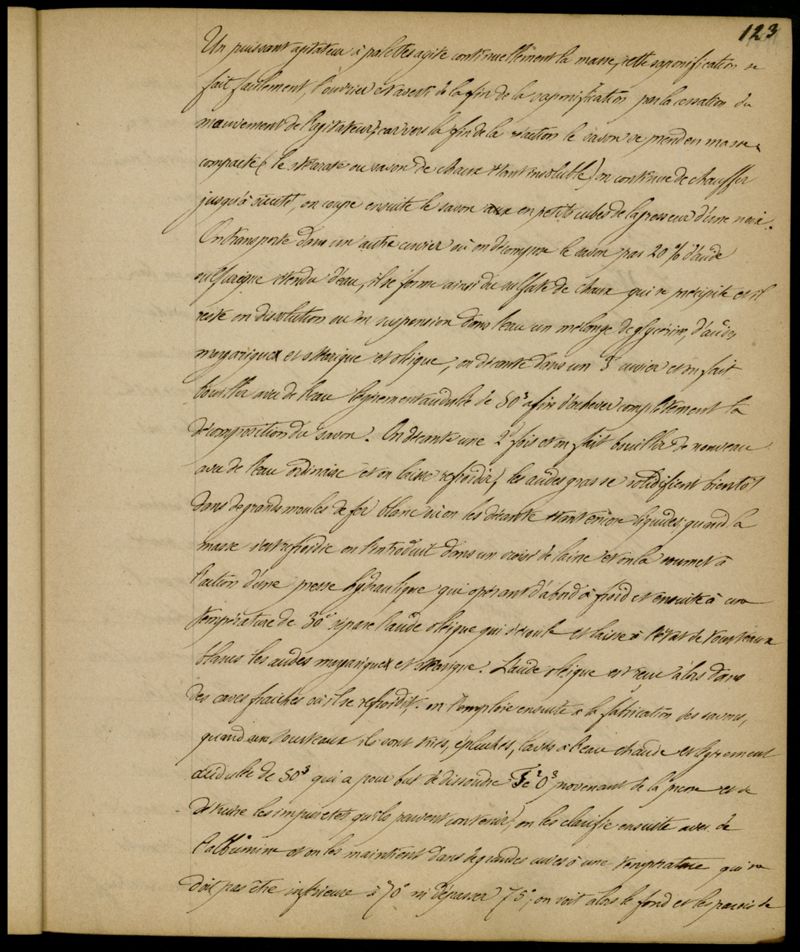 123
Un puissant agitateur à palettes agite continuellement la masse, cette saponification se
fait facilement, l'ouvrier est averti de la fin de la saponification par la cessation du
mouvement de l'agitateur, car vers la fin de la réaction le savon se prend en masse
compacte (le stéarate ou savon de chaux étant insoluble) on continue de chauffer
jusqu'à siccité, on coupe ensuite le savon en petits cubes de la grosseur d'une noix.
On transporte dans un autre cuvier où on décompose le savon par 20 % d'acide
sulfurique étendu d'eau, il se forme ainsi du sulfate de chaux qui se précipite et il
reste en dissolution ou en suspension dans l'eau un mélange de glycérine, d'acides
margarique et stéarique et oléique, on décante dans un 3e cuvier et on fait
bouillir avec de l'eau légèrement acidulée de SO3 afin d'achever complètement la
décomposition du savon. On décante une 2e fois et on fait bouillir de nouveau
avec de l'eau ordinaire et on laisse refroidir, les acides gras se solidifient bientôt
dans de grands moules de fer blanc où on les décante étant encore liquides; quand la
masse s'est refroidie on l'introduit dans un de laine et on la soumet à
l'action d'une presse hydraulique qui opérant d'abord à froid et ensuite à une
température de 30° sépare l'acide oléique qui s'écoule et laisse à l'état de tourteaux
blancs les acides margarique et stéarique. L'acide oléique est reçu alors dans
des caves fraîches où il se refroidit. on l'emploie ensuite à la fabrication des savons,
quand aux tourteaux ils sont triés, épluchés, lavés à l'eau chaude et légèrement
acidulée de SO3 qui a pour but de dissoudre Fe2O3 provenant de la presse et de
détruire les impuretés qu'ils peuvent contenir, on les clarifie ensuite avec de
l'albumine et on les maintient dans de grandes cuves à une température qui ne
doit pas être inférieure à 70° ni dépasser 75°; on voit alors le fond et les parois de